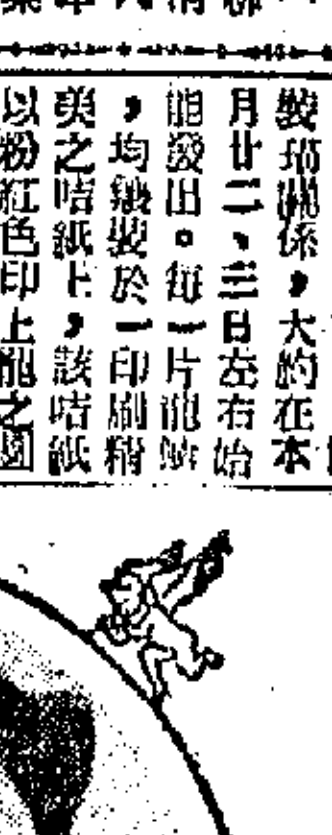 裝璜關係，大約在本
月廿二、三日左右始
能發出。每一片龍鱗
，均鑲裝於一印刷精
美之咭紙上，該咭紙
以粉紅色印上龍之圖